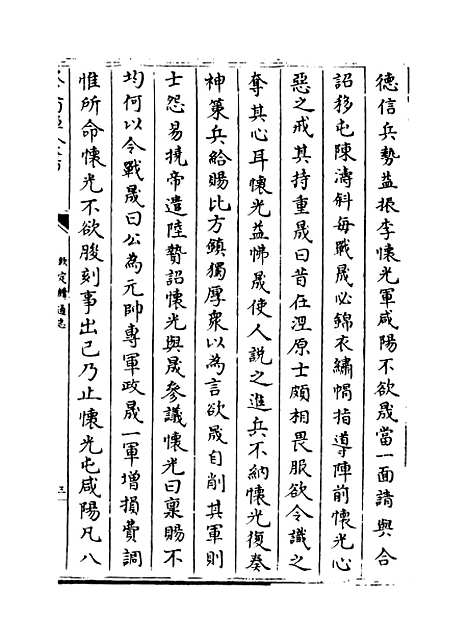 德信兵勢益振李懷光軍咸陽不欲晟當一面請與合
詔移屯陳濤斜每戰晟必錦衣繡㡌指導陣前懷光心
惡之戒其持重晟曰昔在涇原士頗相畏服欲令識之
奪其心耳懷光益怫晟使人說之進兵不納懷光復奏
神策兵給賜比方鎮獨厚衆以為言欲晟自削其軍則
士怨易撓帝遣陸贄詔懷光與晟參議懷光曰稟賜不
均何以令戰晟曰公為元帥專軍政晟一軍增損費調
惟所命懷光不欲朘刻事出已乃止懷光屯咸陽凡八
欽定續通志
三